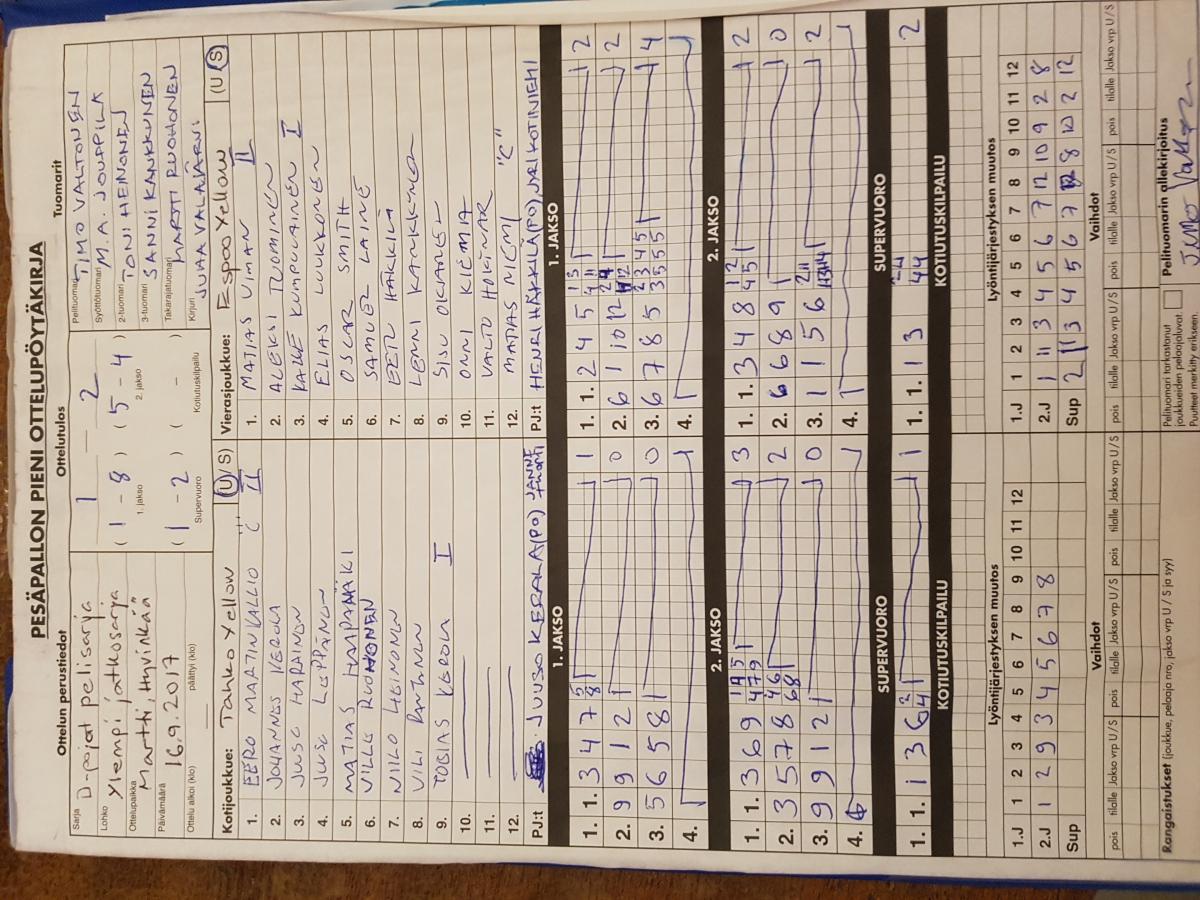 PESÄPALLON PIENI OTTELUPÖYTÄKIRJA
Ottelun perustiedot
Sarja D-pojat pelisarja
Lohko Ylempi jatkosarja
Ottelupaikka Martti, Hyvinkää
Päivämäärä 16.9.2017
Ottelu alkoi (klo) päättyi (klo)
Ottelutulos
1 - 2
(1 - 8) (5 - 4)
1. jakso 2. jakso
(1 - 2) ( - )
Supervuoro Kotiutuskilpailu
Tuomarit
Pelituomari TIMO VALTONEN
Syöttötuomari M.A. JOUPPILA
2-tuomari TONI HEINONEN
3-tuomari SANNI KANKKUNEN
Takarajatuomari MARTTI RUOHONEN
Kirjuri
Kotijoukkue: Tahko Yellow (U/S)
1. EERO MARTINKALLIO "C" II
2. JOHANNES KEROLA
3. JUSO
4. JUSO LEPPÄNEN
5. MATIAS HAAPAMÄKI
6. VILLE RUOHONEN
7. NIILO LEINONEN
8. VILI
9. TOBIAS KEROLA I
10.
11.
12.
PJ:t JUUSO KERALA(PO) JANNE
Vierasjoukkue: Espoo Yellow (U/S)
1. MATIAS VIMAN II
2. ALEKSI TUOMINEN
3. KALLE KUMPULAINEN I
4. ELIAS LUUKKONEN
5. OSCAR SMITH
6. SAMUEL LAINE
7. EETU HÄKKILÄ
8. LENNI KANKKUNEN
9. SISU OKSANEN
10. ONNI KIEMA
11. VALTO
12. MATIAS NIEMI "C"
PJ:t HENRI HÄKKILÄ(PO), JYRI KOTINIEMI
1. JAKSO 1. JAKSO
1. 1. 3 4 7 5 8 1
2. 9 9 1 2 0
3. 5 6 5 8 0
4.
1. 1. 2 4 5 2
2. 6 1 10 12 2
3. 6 7 8 5 4
4.
2. JAKSO 2. JAKSO
1. 1. 3 6 9 3
2. 3 5 7 8 2
3. 9 9 1 2 0
4.
1. 1. 3 4 8 2
2. 6 6 8 9 0
3. 1 1 5 6 2
4.
SUPERVUORO SUPERVUORO
1. 1. 1 3 6 1
1. 1. 1 3 44 2
KOTIUTUSKILPAILU KOTIUTUSKILPAILU
Lyöntijärjestyksen muutos Lyöntijärjestyksen muutos
1.J 1 2 3 4 5 6 7 8 9 10 11 12
2.J 1 2 9 3 4 5 6 7 8
Sup
1.J 1 2 3 4 5 6 7 8 9 10 11 12
2.J 1 11 3 4 5 6 7 12 10 9 2 8
Sup 2 11 3 4 5 6 7 8 10 2 12
Vaihdot Vaihdot
pois tilalle Jakso vrp U / S pois tilalle Jakso vrp U / S pois tilalle Jakso vrp U / S
pois tilalle Jakso vrp U / S pois tilalle Jakso vrp U / S pois tilalle Jakso vrp U / S
Rangaistukset (joukkue, pelaaja nro, jakso vrp U / S ja syy)
Pelituomari tarkastanut
joukkueiden pelaajaluvat.
Puutteet merkitty erikseen.
Pelituomarin allekirjoitus